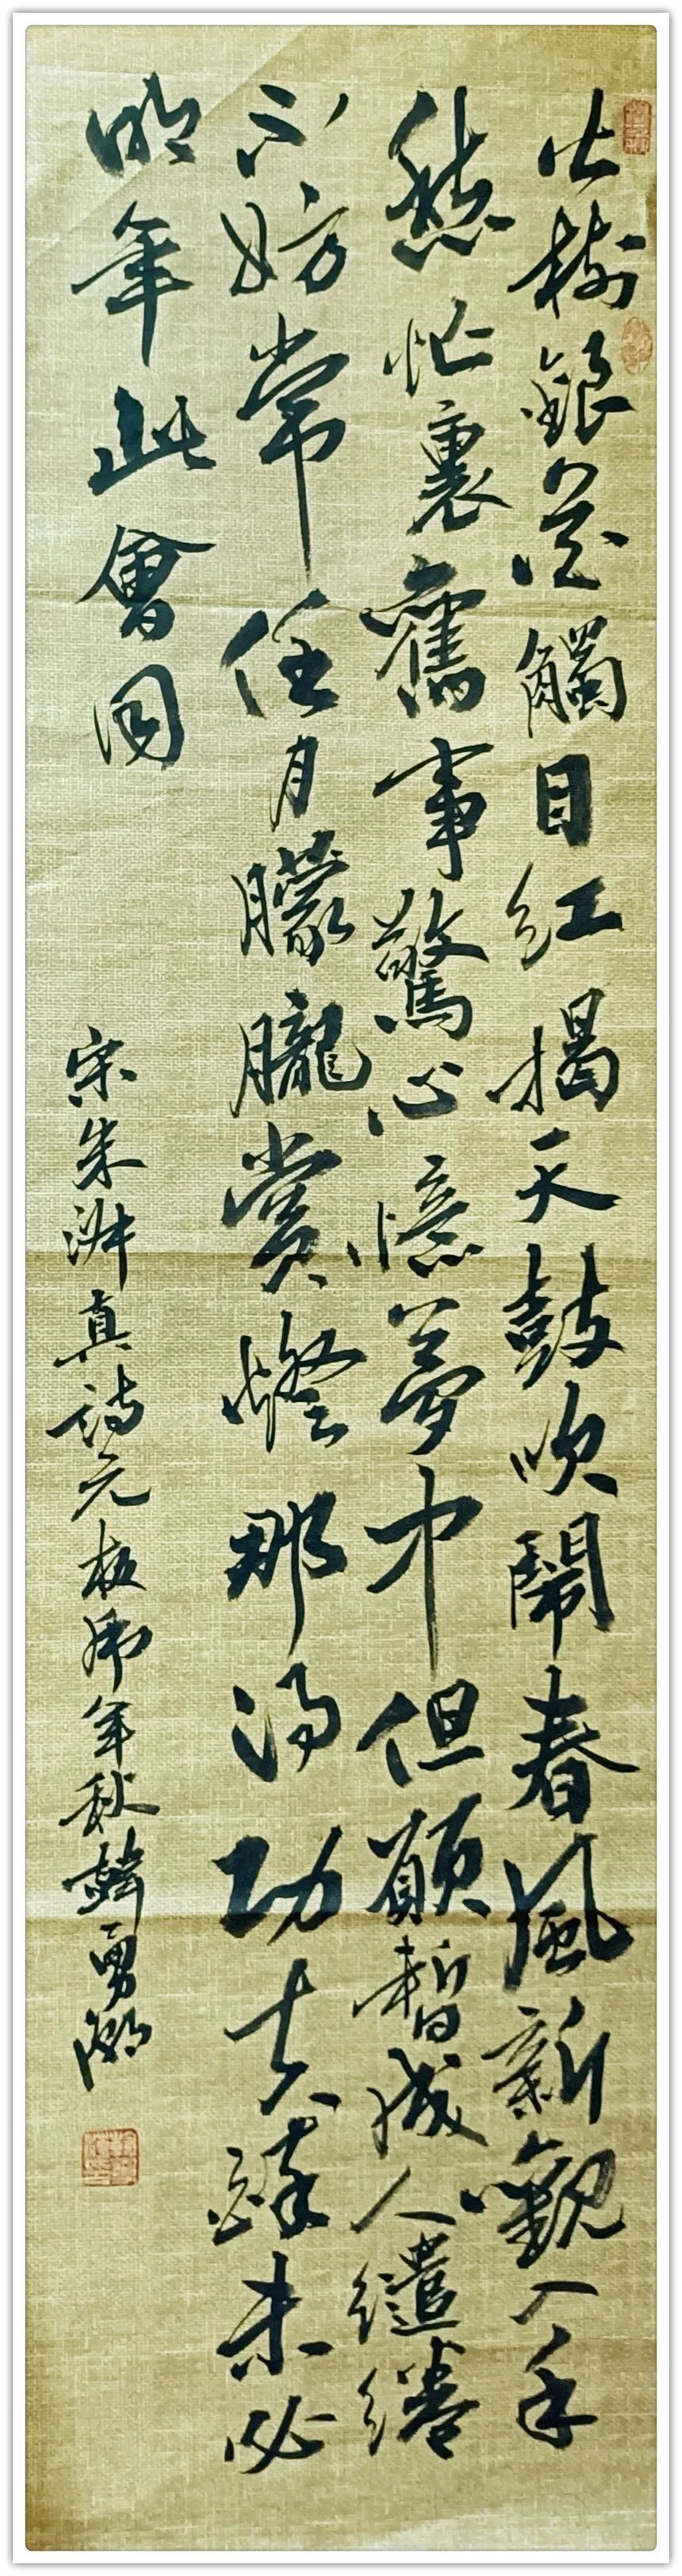 火樹銀花觸目紅揭天鼓吹鬧春風新觀入手
愁忙裏舊事驚心憶夢中但願暫成人繾綣
不妨常任月朦朧賞燈那得功夫醉未必
明年此會同
宋朱淑真詩元年秋韓勇